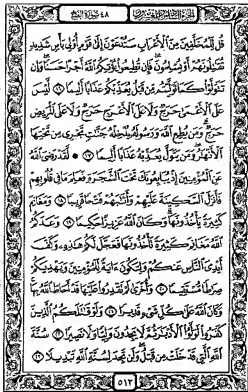 الجزء السادس والعشرون ٤٨ سورة الفتح
قُل لِّلْمُخَلَّفِينَ مِنَ ٱلْأَعْرَابِ سَتُدْعَوْنَ إِلَىٰ قَوْمٍ أُو۟لِى بَأْسٍ شَدِيدٍ
تُقَٰتِلُونَهُمْ أَوْ يُسْلِمُونَ فَإِن تُطِيعُوا۟ يُؤْتِكُمُ ٱللَّهُ أَجْرًا حَسَنًا وَإِن
تَتَوَلَّوْا۟ كَمَا تَوَلَّيْتُم مِّن قَبْلُ يُعَذِّبْكُمْ عَذَابًا أَلِيمًا ١٦ لَّيْسَ
عَلَى ٱلْأَعْمَىٰ حَرَجٌ وَلَا عَلَى ٱلْأَعْرَجِ حَرَجٌ وَلَا عَلَى ٱلْمَرِيضِ
حَرَجٌ وَمَن يُطِعِ ٱللَّهَ وَرَسُولَهُۥ يُدْخِلْهُ جَنَّٰتٍ تَجْرِى مِن تَحْتِهَا
ٱلْأَنْهَٰرُ وَمَن يَتَوَلَّ يُعَذِّبْهُ عَذَابًا أَلِيمًا ١٧ ۞ لَّقَدْ رَضِىَ ٱللَّهُ
عَنِ ٱلْمُؤْمِنِينَ إِذْ يُبَايِعُونَكَ تَحْتَ ٱلشَّجَرَةِ فَعَلِمَ مَا فِى قُلُوبِهِمْ
فَأَنزَلَ ٱلسَّكِينَةَ عَلَيْهِمْ وَأَثَٰبَهُمْ فَتْحًا قَرِيبًا ١٨ وَمَغَانِمَ
كَثِيرَةً يَأْخُذُونَهَا وَكَانَ ٱللَّهُ عَزِيزًا حَكِيمًا ١٩ وَعَدَكُمُ
ٱللَّهُ مَغَانِمَ كَثِيرَةً تَأْخُذُونَهَا فَعَجَّلَ لَكُمْ هَٰذِهِۦ وَكَفَّ
أَيْدِىَ ٱلنَّاسِ عَنكُمْ وَلِتَكُونَ ءَايَةً لِّلْمُؤْمِنِينَ وَيَهْدِيَكُمْ
صِرَٰطًا مُّسْتَقِيمًا ٢٠ وَأُخْرَىٰ لَمْ تَقْدِرُوا۟ عَلَيْهَا قَدْ أَحَاطَ ٱللَّهُ بِهَا
وَكَانَ ٱللَّهُ عَلَىٰ كُلِّ شَىْءٍ قَدِيرًا ٢١ وَلَوْ قَٰتَلَكُمُ ٱلَّذِينَ
كَفَرُوا۟ لَوَلَّوُا۟ ٱلْأَدْبَٰرَ ثُمَّ لَا يَجِدُونَ وَلِيًّا وَلَا نَصِيرًا ٢٢ سُنَّةَ
ٱللَّهِ ٱلَّتِى قَدْ خَلَتْ مِن قَبْلُ وَلَن تَجِدَ لِسُنَّةِ ٱللَّهِ تَبْدِيلًا ٢٣
٥١٣